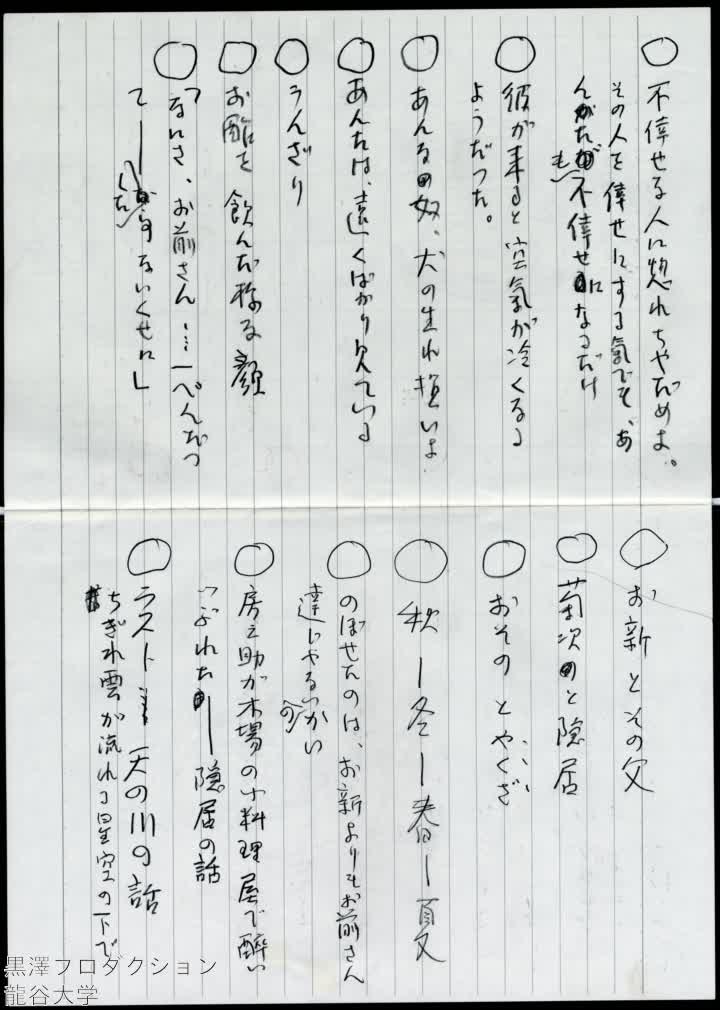 ○ 不倖せな人に惚れちゃだめよ。
その人を倖せにする氣でも、あ
んたも不倖せになるだけ
○ 彼が来ると空氣が冷くなる
ようだつた。
○ あんな奴、犬の生れ損いよ
○ あんたは、遠くばかり見ている
○ うんざり
○ お酢を飲んだ様な顔
○ 「なにさ、お前さん……一ぺんだつ
て——ないくせに」
○ お新とその父
○ 菊次と隠居
○ おそのとやくざ
○ 秋—冬—春—夏
○ のぼせたのは、お新よりもお前さん
達じやないのかい
○ 房之助が木場の小料理屋で醉い
つぶれた——隠居の話
○ ラスト…… 天の川の話
ちぎれ雲が流れる星空の下で
黒澤プロダクション
龍谷大学